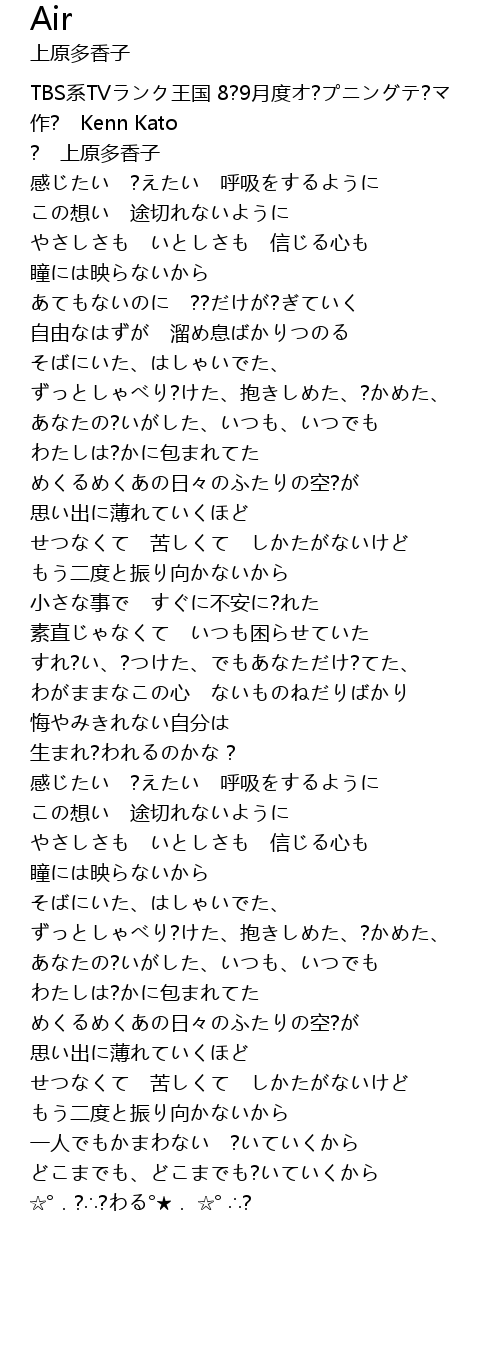 Air
上原多香子
TBS系TVランク王国 8?9月度オ?プニングテ?マ
作?　Kenn Kato
?　上原多香子
感じたい　?えたい　呼吸をするように
この想い　途切れないように
やさしさも　いとしさも　信じる心も
瞳には映らないから
あてもないのに　??だけが?ぎていく
自由なはずが　溜め息ばかりつのる
そばにいた、はしゃいでた、
ずっとしゃべり?けた、抱きしめた、?かめた、
あなたの?いがした、いつも、いつでも
わたしは?かに包まれてた
めくるめくあの日々のふたりの空?が
思い出に薄れていくほど
せつなくて　苦しくて　しかたがないけど
もう二度と振り向かないから
小さな事で　すぐに不安に?れた
素直じゃなくて　いつも困らせていた
すれ?い、?つけた、でもあなただけ?てた、
わがままなこの心　ないものねだりばかり
悔やみきれない自分は
生まれ?われるのかな？
感じたい　?えたい　呼吸をするように
この想い　途切れないように
やさしさも　いとしさも　信じる心も
瞳には映らないから
そばにいた、はしゃいでた、
ずっとしゃべり?けた、抱きしめた、?かめた、
あなたの?いがした、いつも、いつでも
わたしは?かに包まれてた
めくるめくあの日々のふたりの空?が
思い出に薄れていくほど
せつなくて　苦しくて　しかたがないけど
もう二度と振り向かないから
一人でもかまわない　?いていくから
どこまでも、どこまでも?いていくから
☆°．?∴?わる°★． ☆° ∴?